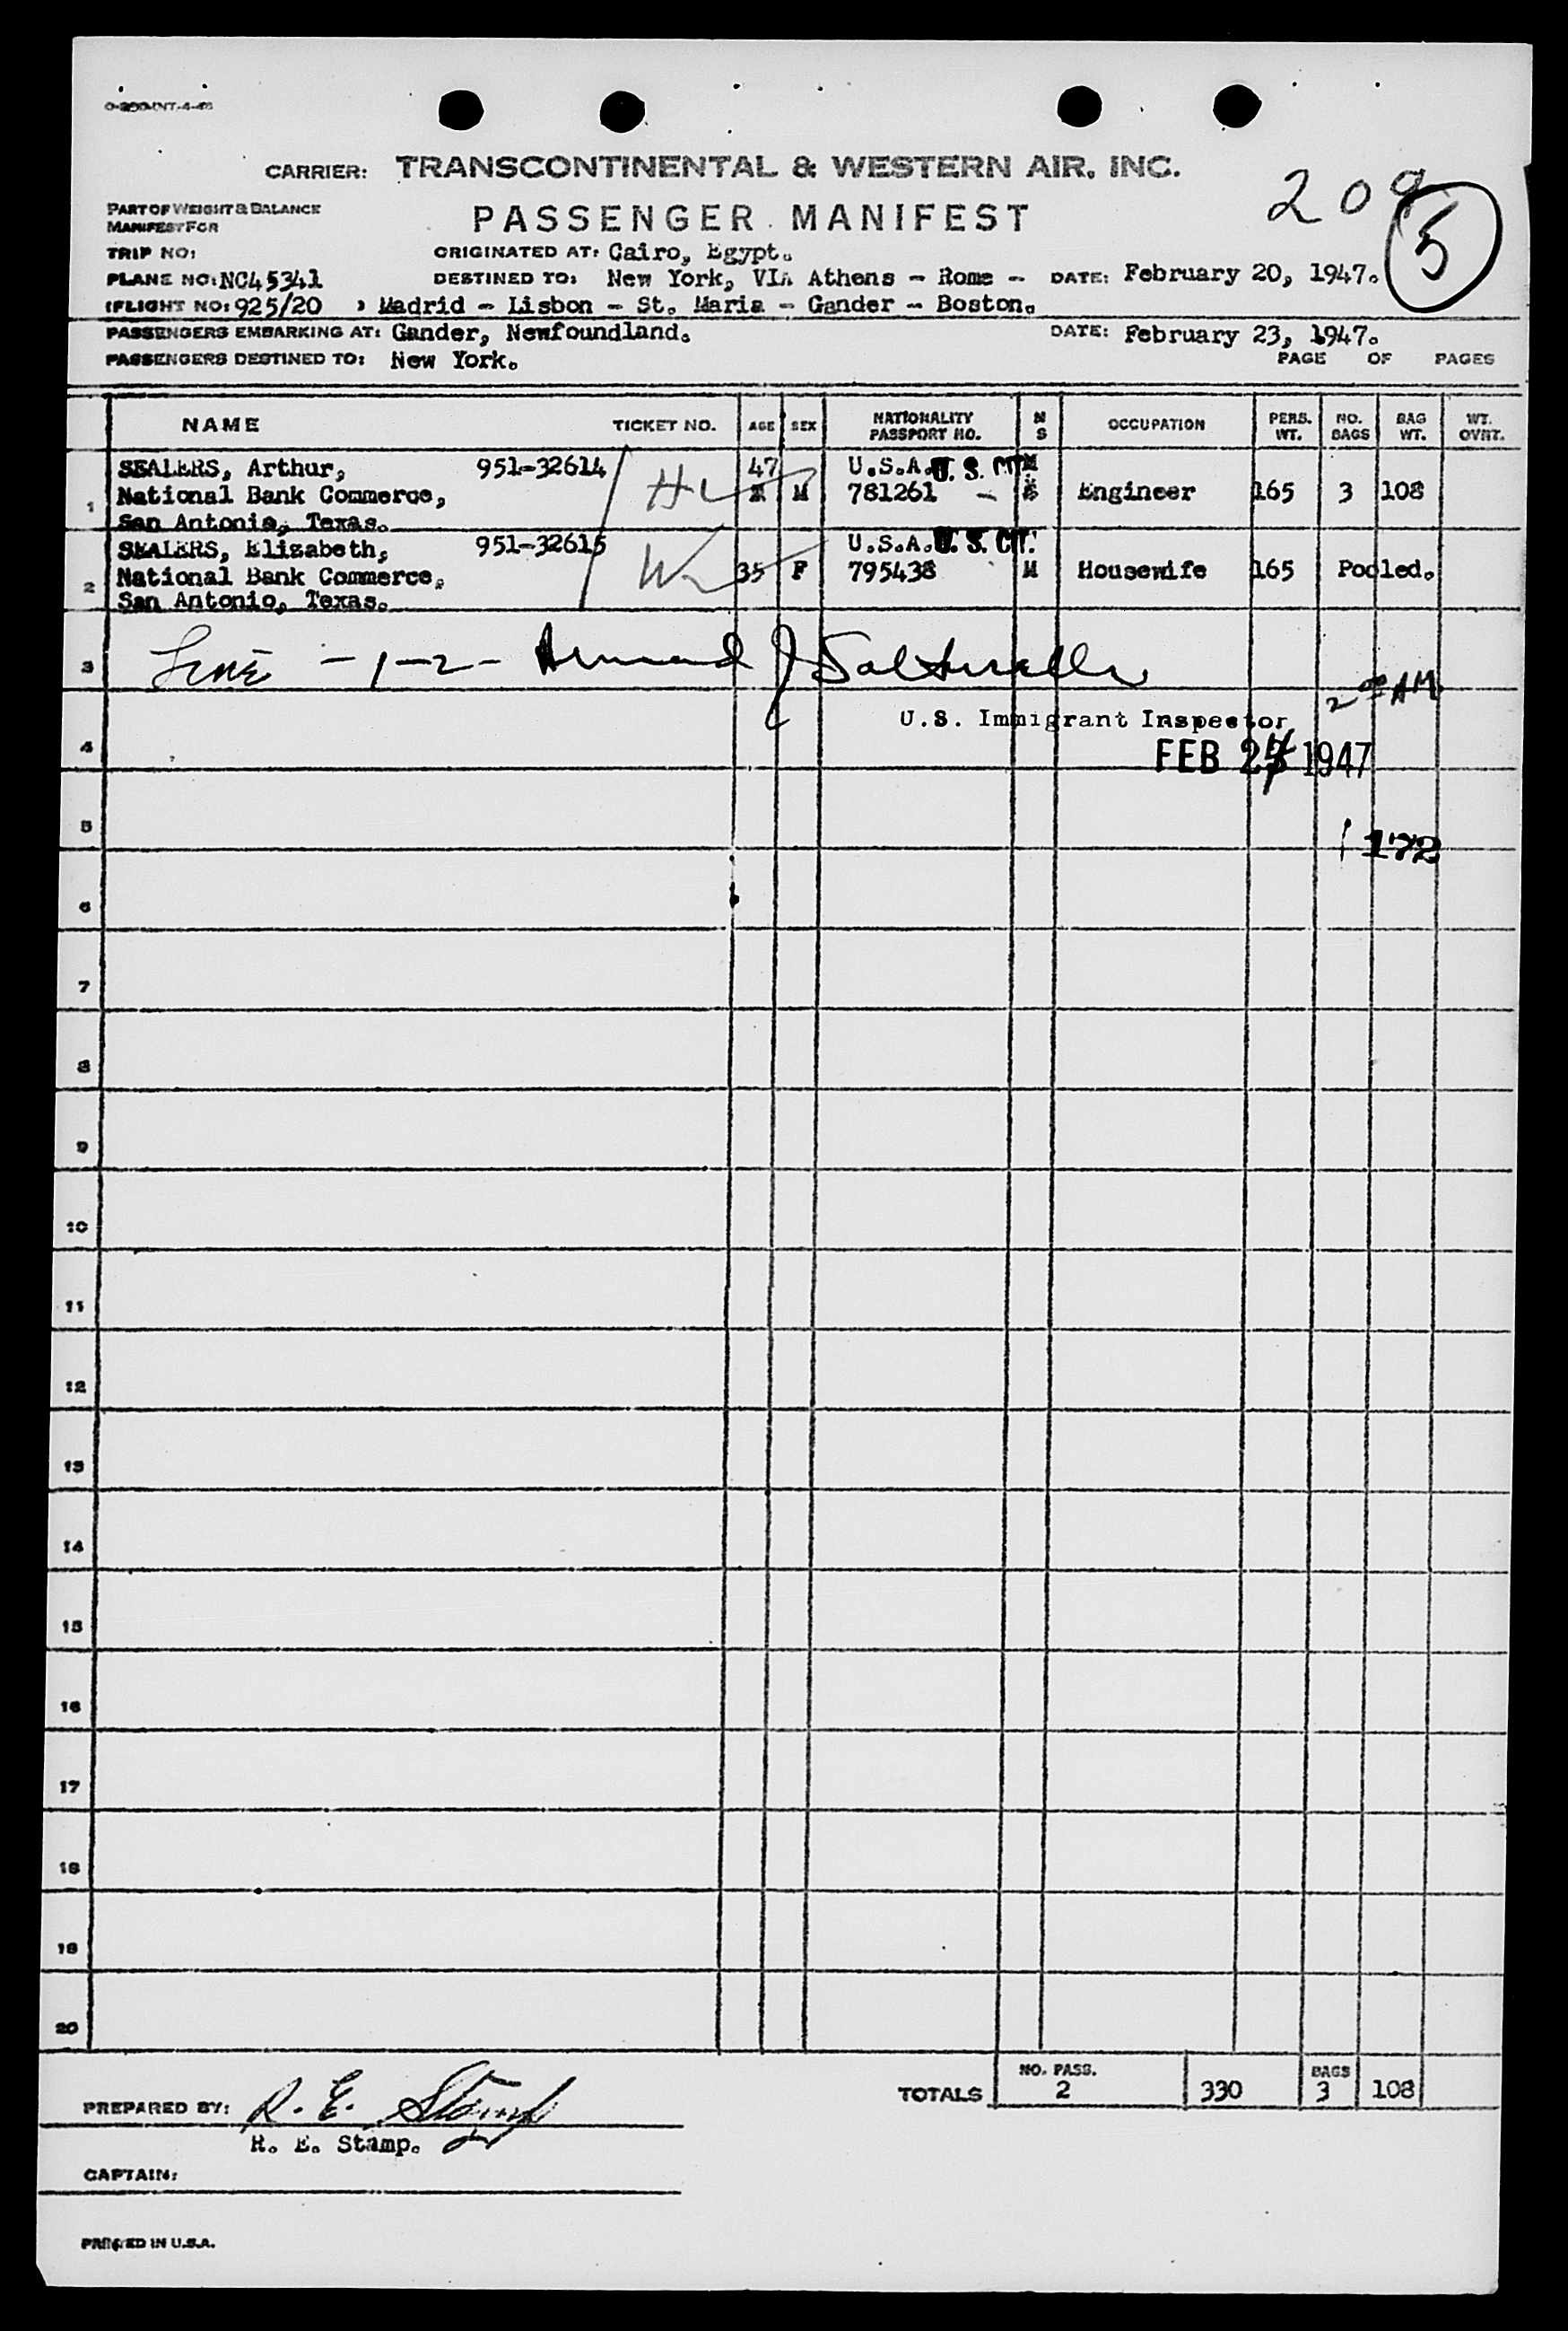 CARRIER: TRANSCONTINENTAL & WESTERN AIR, INC.
209
5
PART OF WEIGHT & BALANCE
MANIFEST FOR
PASSENGER MANIFEST
TRIP NO:
ORIGINATED AT: Cairo, Egypt.
PLANE NO: NC45341
DESTINED TO: New York, VIA Athens - Rome -
DATE: February 20, 1947.
FLIGHT NO: 925/20
Madrid - Lisbon - St. Maria - Gander - Boston.
PASSENGERS EMBARKING AT: Gander, Newfoundland.
DATE: February 23, 1947.
PASSENGERS DESTINED TO: New York.
PAGE OF PAGES
NAME TICKET NO. AGE SEX NATIONALITY PASSPORT NO. M S OCCUPATION PERS. WT. NO. BAGS BAG WT. WT. OVRT.
SEALERS, Arthur, 951-32614 47 U.S.A. U. S. CIT.
1 National Bank Commerce, M 781261 - Engineer 165 3 108
San Antonio, Texas.
SEALERS, Elizabeth, 951-32615 U.S.A. U. S. CIT.
2 National Bank Commerce, 35 F 795438 M Housewife 165 Pooled.
San Antonio, Texas.
3 Line - 1-2 - Armand J
2 00 AM
U.S. Immigrant Inspector
4
FEB 24 1947
5
172
6
7
8
9
10
11
12
13
14
15
16
17
18
19
20
TOTALS NO. PASS. 2 330 BAGS 3 108
PREPARED BY: R. E. Stamp
R. E. Stamp.
CAPTAIN:
PRINTED IN U.S.A.